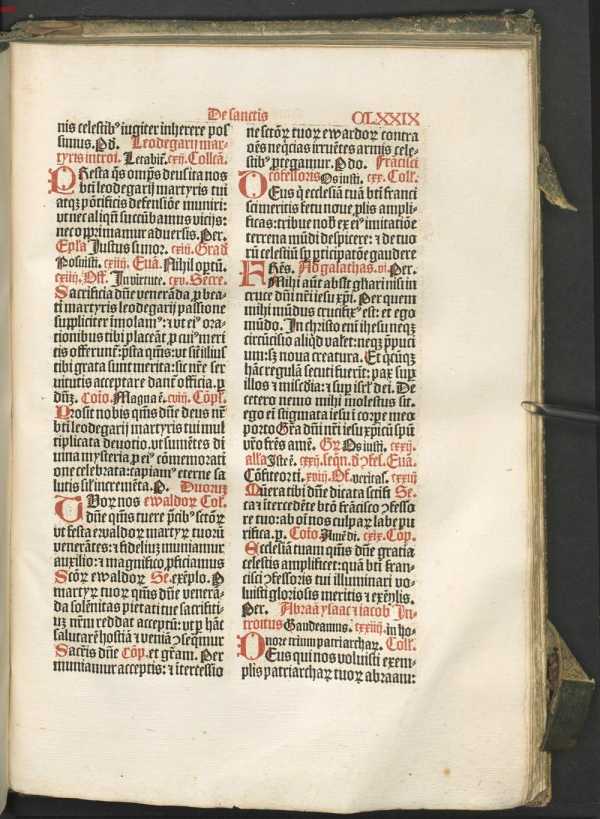 De sanctis
CLXXIX
nis celestibꝰ iugiter inherere pos
simus. Leodegarij mar-
tyris introi. Letabit᷑. cxij. Collcā.
PResta q̄s omp̄s deus: ita nos
bt̄i leodegarij martyris tui
atqꝫ pōtificis defensiōe muniri:
vt nec aliq̄ti succūbamus vicijs:
nec opprimamur aduersis. Per.
Ep̄la Iustus si mor. cxiij. Grad̄
Posuisti. cxiiij. Euā. Nihil optū.
cxiiij. Off. In virtute. cxv. Secre.
Sacrificia dn̄e venerāda ꝓ bea-
ti martyris leodegarij passione
suppliciter imolamꝰ: ⁊ vt eiꝰ ora-
tionibus tibi placeāt ꝓ cuiꝰ meri
tis offerunt᷑: p̄sta q̄m̄s: vt sit illiꝰ
tibi grata sunt merita: sic nr̄e ser
uitutis acceptare dānꝰ officia. ꝑ
dn̄ꝫ. Coīo. Magna ē. cviij. Cōpl̄.
PRosit nobis q̄m̄s dn̄e deus nr̄
bt̄i leodegarij martyris tui mul
tiplicata deuotio. vt sumētes di
uina mysteria p̄ eiꝰ cōmemorati
one celebrata: capiamꝰ eterne sa
lutis sil̓ incremēta. P. Duoruꝫ
TVor nos ewaldoꝝ Col̄.
dn̄e q̄m̄s tuere p̄cibꝰ sctōꝝ
vt festa ewaldoꝝ martyꝝ tuorū
venerātes: ⁊ fideliuꝫ muniamur
auxilio: ⁊ magnifico ꝓficiamus
Sctōꝝ ewaldoꝝ Se. exēplo. P
martyꝝ tuoꝝ q̄m̄s dn̄e venerā-
da solēnitas pietati tue sacrifici-
uꝫ nr̄m reddat acceptū: vt ꝑ hāc
salutarē hostiā ⁊ veniā ꝯseq̄mur
Sacris dn̄e Cōp. et gr̄am. Per
muniamur acceptis: ⁊ itercessio
ne sctōꝝ tuoꝝ ewardoꝝ contra
oēs neq̄cias irruētes armis cele-
stibꝰ ꝓtegamur. P do. Frācisci
cōfessoris Os iusti. cxx. Coll̄.
DEus q̄ ecclesiā tuā bt̄i franci
sci meritis fetu noue ꝓlis ampli-
ficas: tribue nob̄ ex eiꝰ imitatiōe
terrena mūdi despicere: ⁊ de tuo
rū celestiū sꝑ participatōe gaudere
Frēs. Ad galathas. vi. Per.
Mihi aūt absit gl̄iari nisi in
cruce dn̄i nr̄i iesu xp̄i. Per quem
mihi mūdus crucifixꝰ est: et ego
mūdo. In christo eni̅ ihesu neqꝫ
circūcisio aliqd̓ valet: neqꝫ p̄puci
um: sꝫ noua creatura. Et qͥcūqꝫ
hāc regulā secuti fuerīt: pax suꝑ
illos ⁊ mīscd̓ia: ⁊ suꝑ isrl̓ dei. De
cetero nemo mihi molestus sit.
ego eni̅ stigmata iesu ī corꝑe meo
porto Gr̄a dn̄i nr̄i iesu xp̄i cū spū
vr̄o fr̄es amē. Gr̄ Os iusti. cxxij.
alīa Iste ē. cxxij. seqn̄. d̓ ꝯfel̄. Euā.
Cōfiteor ti. xviij. Of. veritas. cxxiij
MUnera tibi dn̄e dicata scīfi Se.
ca ⁊ itercedēte bt̄o frācisco ꝯfesso
re tuo: ab oī nos culpaꝝ labe pu
rifica. ꝑ. Coīo. Amē di. cxix. Cop.
Ecclesiā tuam q̄m̄s dn̄e gratia
celestis amplificet: quā bt̄i fran-
cisci ꝯfessoris tui illuminari vo-
luisti gloriosis meritis ⁊ exēplis.
Per. Abraā ysaac ⁊ iacob In-
troitus Gaudeamus. cxxiiij. in ho-
nore trium patriarchaꝝ. Coll̄.
DEus qui nos voluisti exem-
plis patriarchaꝝ tuoꝝ abraam: